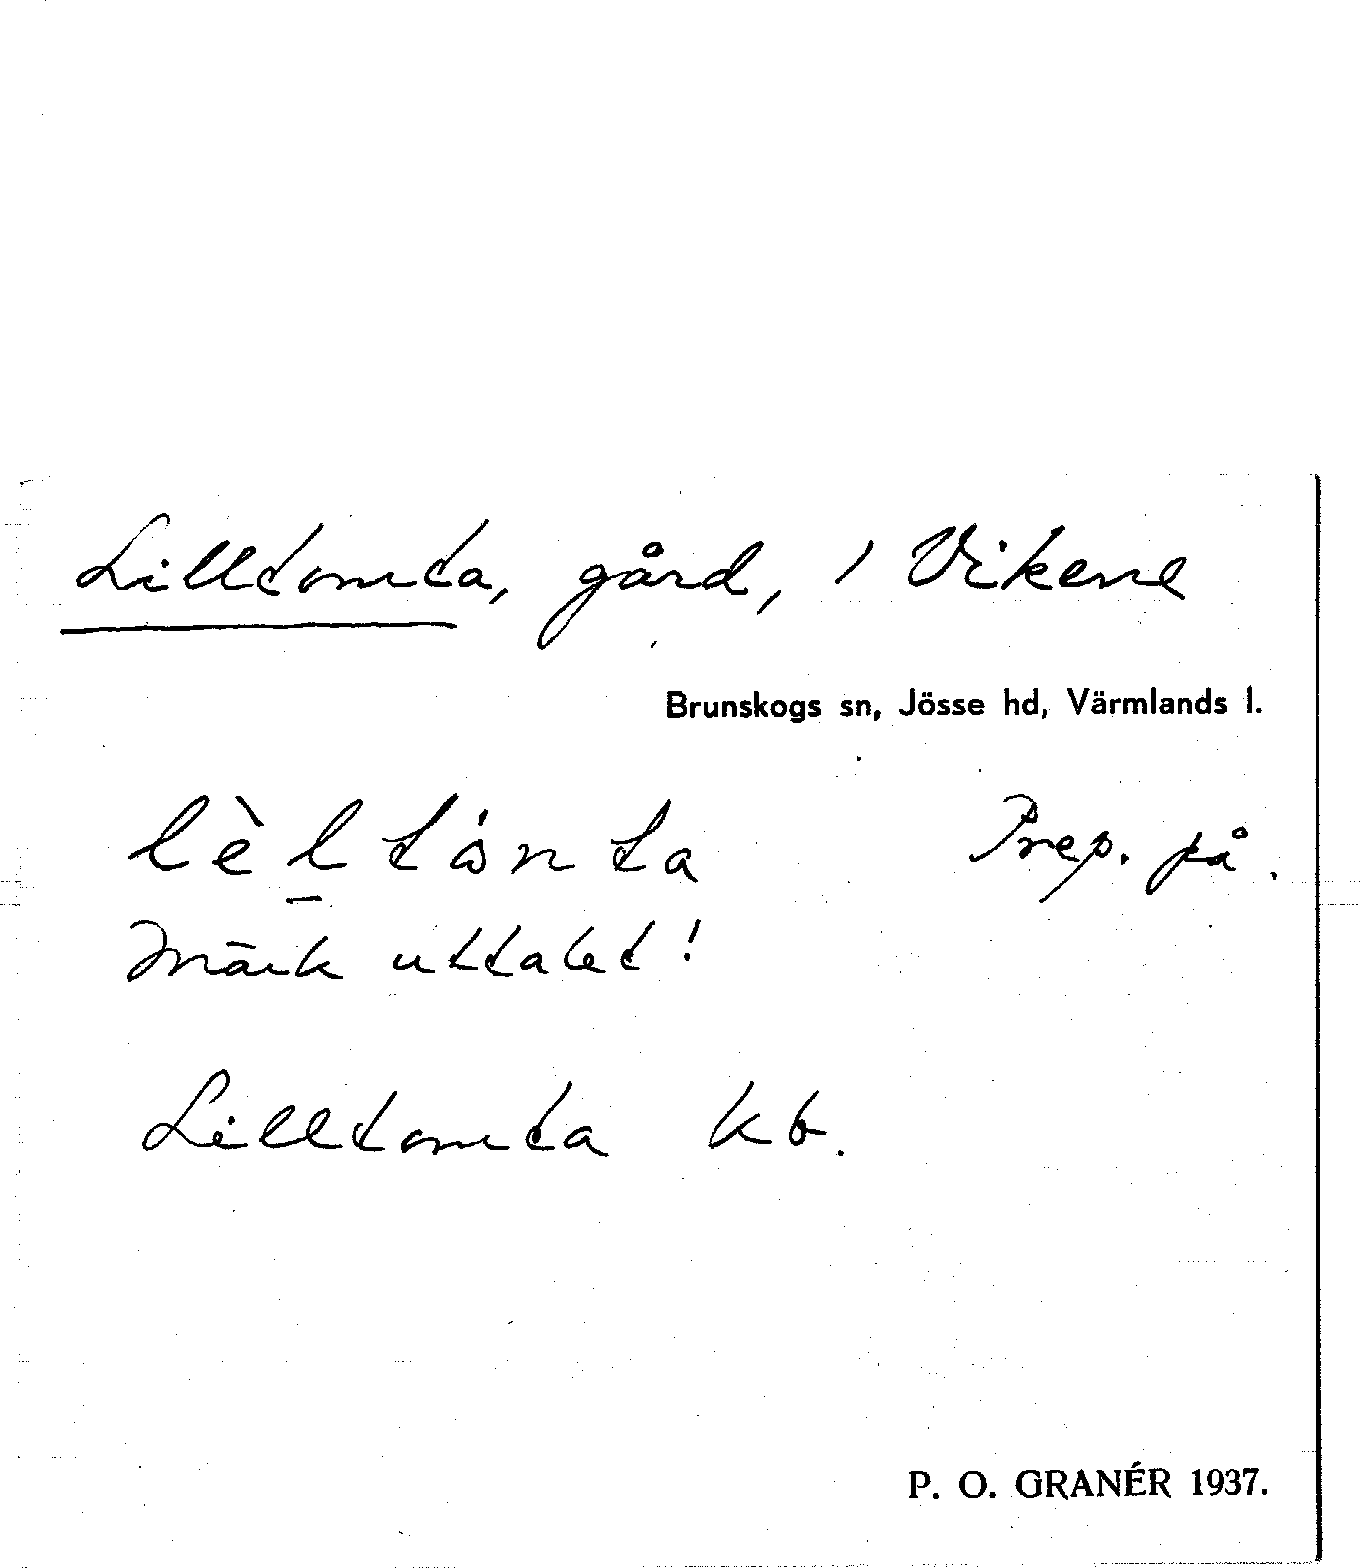 Lilltomta, gård, i Vikene
Brunskogs sn, Jösse hd, Värmlands l.
lèltònta Prep. på.
Märk uttalet!
Lilltomta kb.
P. O. GRANÉR 1937.